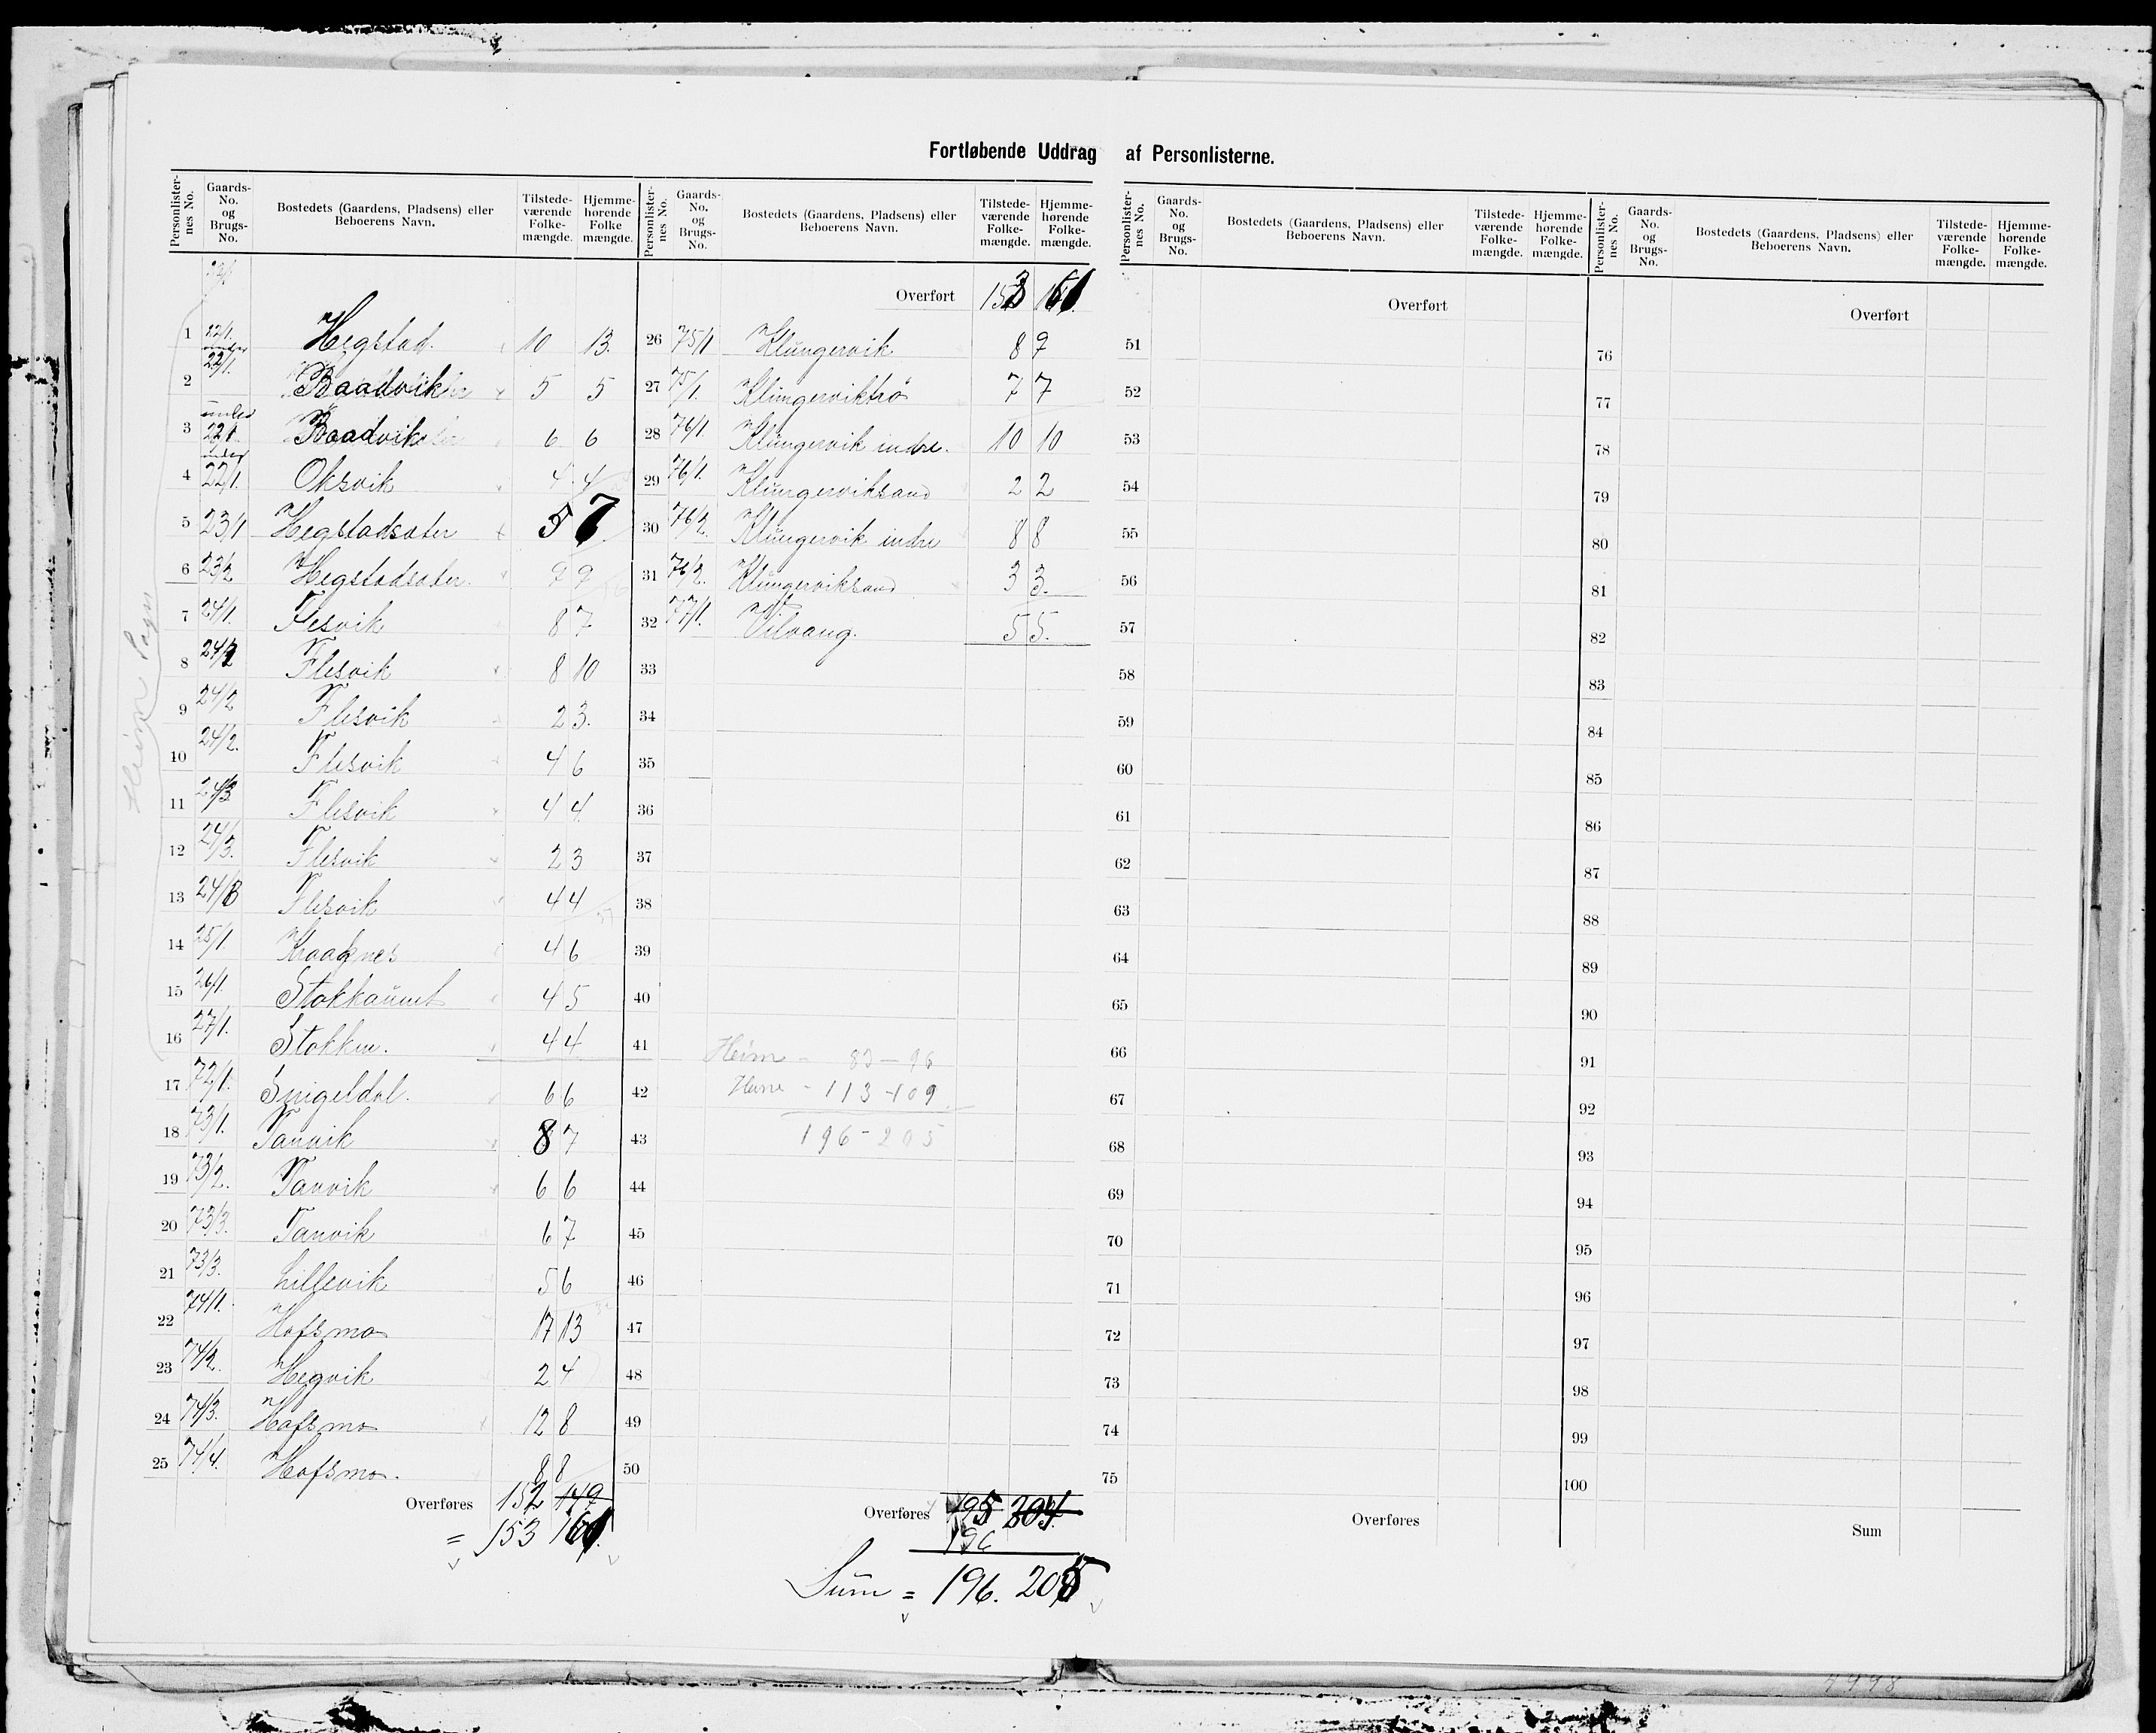 Fortløbende Uddrag af Personlisterne.
Personlister-nes No. | Gaards-No. og Brugs-No. | Bostedets (Gaardens, Pladsens) eller Beboerens Navn. | Tilstede-værende Folke-mængde. | Hjemme-hørende Folke mængde.
1 22/1. Hegstad. 10 13.
2 under 22/1. Baadvik 5 5
3 under 22/1. Baadvik 6 6
4 under 22/1. Oksvik 4 4
5 23/1 Hegstadsæter 5 7
6 23/2 Hegstadsæter 9 9
7 24/1. Flesvik 8 7
8 24/2 Flesvik 8 10
9 24/2 Flesvik 2 3.
10 24/2. Flesvik 4 6
11 24/3 Flesvik 4 4
12 24/3. Flesvik 2 3
13 24/3 Flesvik 4 4
14 25/1. Kraaknes 4 6
15 26/1. Stokkaunet 4 5
16 27/1. Stokken. 4 4
17 72/1. Snigeldal. 6 6
18 73/1. Tannvik 8 7
19 73/2. Tannvik 6 6
20 73/3. Tannvik 6 7
21 73/3. Lillevik 5 6
22 74/1. Hofsmo 17 13
23 74/2. Hegvik 2 4
24 74/3. Hofsmo 12 8
25 74/4. Hofsmo. 8 8
Overføres 152 149
= 153 161.
Heim Sogn
Personlister-nes No. | Gaards-No. og Brugs-No. | Bostedets (Gaardens, Pladsens) eller Beboerens Navn. | Tilstede-værende Folke-mængde. | Hjemme-hørende Folke-mængde.
Overført 153 161.
26 75/1 Klungervik 8 9
27 75/1. Klungerviktrø 7 7
28 76/1. Klungervik indre. 10 10
29 76/1. Klungerviksand 2 2
30 76/2. Klungervik indre 8 8
31 76/2. Klungerviksand 3 3.
32 77/1. Vilvang. 5 5.
33
34
35
36
37
38
39
40
41 Heim - 83 - 96
42 Hevne - 113 - 109
43 196 - 205
44
45
46
47
48
49
50
Overføres 195 204.
196
Sum = 196. 205
Personlister-nes No. | Gaards-No. og Brugs-No. | Bostedets (Gaardens, Pladsens) eller Beboerens Navn. | Tilstede-værende Folke-mængde. | Hjemme-hørende Folke-mængde.
Overført
51
52
53
54
55
56
57
58
59
60
61
62
63
64
65
66
67
68
69
70
71
72
73
74
75
Overføres
Personlister-nes No. | Gaards-No. og Brugs-No. | Bostedets (Gaardens, Pladsens) eller Beboerens Navn. | Tilstede-værende Folke-mængde. | Hjemme-hørende Folke-mængde.
Overført
76
77
78
79
80
81
82
83
84
85
86
87
88
89
90
91
92
93
94
95
96
97
98
99
100
Sum